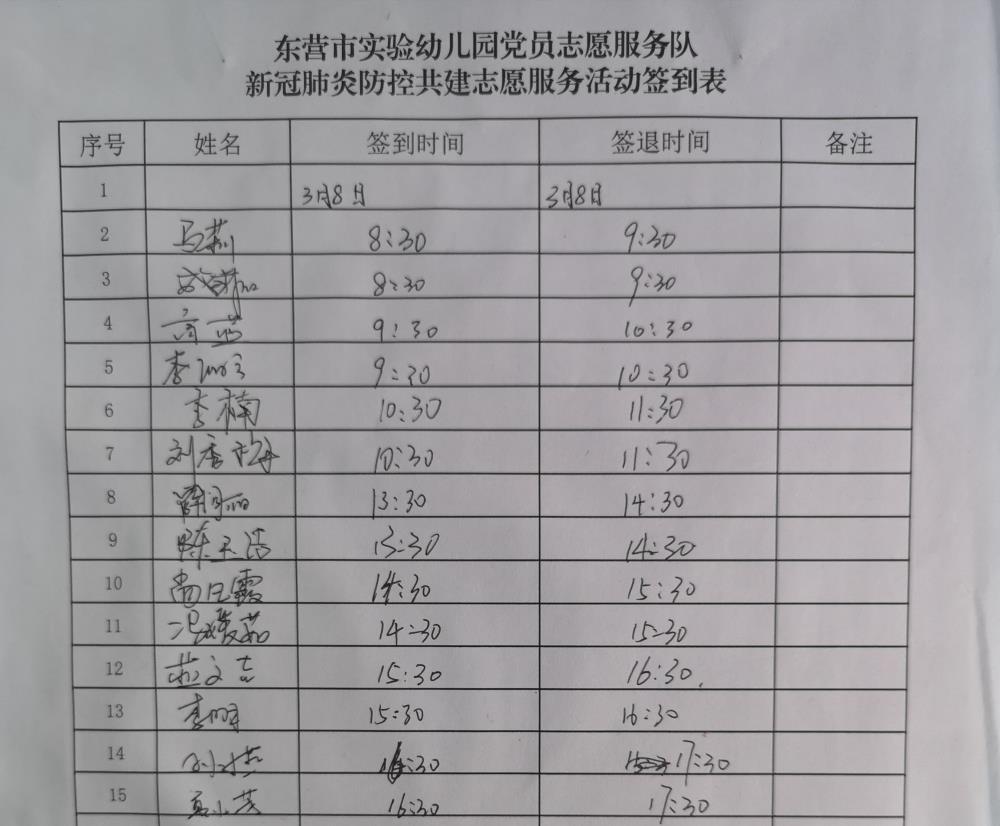 东营市实验幼儿园党员志愿服务队
新冠肺炎防控共建志愿服务活动签到表
序号 姓名 签到时间 签退时间 备注
1 3月8日 3月8日
2 马莉 8:30 9:30
3 8:30 9:30
4 9:30 10:30
5 李 9:30 10:30
6 李楠 10:30 11:30
7 刘秀梅 10:30 11:30
8 13:30 14:30
9 陈玉洁 13:30 14:30
10 尚卫霞 14:30 15:30
11 冯媛茹 14:30 15:30
12 文吉 15:30 16:30
13 李明 15:30 16:30
14 16:30 17:30
15 16:30 17:30